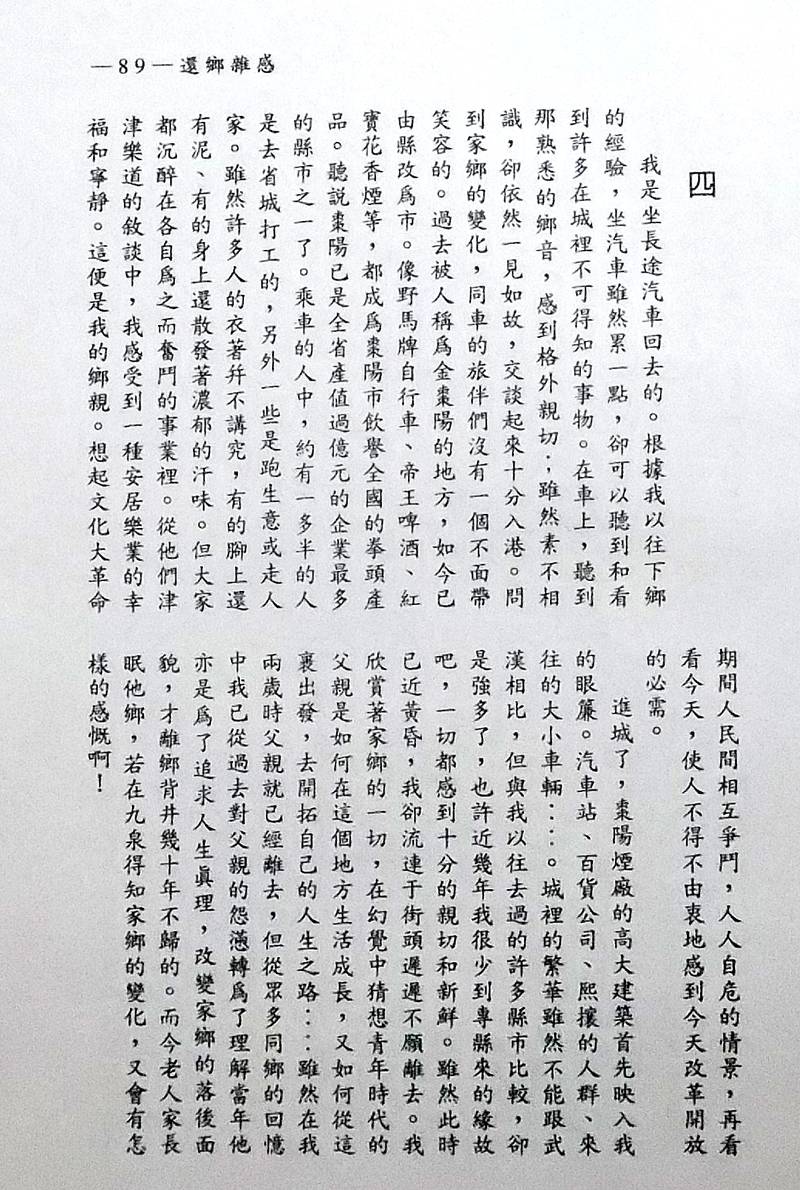 —89—還鄉雜感
四
我是坐長途汽車回去的。根據我以往下鄉
的經驗，坐汽車雖然累一點，卻可以聽到和看
到許多在城裡不可得知的事物。在車上，聽到
那熟悉的鄉音，感到格外親切；雖然素不相
識，卻依然一見如故，交談起來十分入港。問
到家鄉的變化，同車的旅伴們沒有一個不面帶
笑容的。過去被人稱爲金棗陽的地方，如今已
由縣改爲市。像野馬牌自行車、帝王啤酒、紅
寶花香煙等，都成爲棗陽市飲譽全國的拳頭產
品。聽説棗陽已是全省產值過億元的企業最多
的縣市之一了。乘車的人中，約有一多半的人
是去省城打工的，另外一些是跑生意或走人
家。雖然許多人的衣著幷不講究，有的腳上還
有泥、有的身上還散發著濃郁的汗味。但大家
都沉醉在各自爲之而奮鬥的事業裡。從他們津
津樂道的敘談中，我感受到一種安居樂業的幸
福和寧靜。這便是我的鄉親。想起文化大革命
期間人民間相互爭鬥，人人自危的情景，再看
看今天，使人不得不由衷地感到今天改革開放
的必需。
進城了，棗陽煙廠的高大建築首先映入我
的眼簾。汽車站、百貨公司、熙攘的人群、來
往的大小車輛……。城裡的繁華雖然不能跟武
漢相比，但與我以往去過的許多縣市比較，卻
是強多了，也許近幾年我很少到專縣來的緣故
吧，一切都感到十分的親切和新鮮。雖然此時
已近黃昏，我卻流連于街頭遲遲不願離去。我
欣賞著家鄉的一切，在幻覺中猜想青年時代的
父親是如何在這個地方生活成長，又如何從這
裏出發，去開拓自己的人生之路……雖然在我
兩歲時父親就已經離去，但從眾多同鄉的回憶
中我已從過去對父親的怨懣轉爲了理解當年他
亦是爲了追求人生眞理，改變家鄉的落後面
貌，才離鄉背井幾十年不歸的。而今老人家長
眠他鄉，若在九泉得知家鄉的變化，又會有怎
樣的感慨啊！